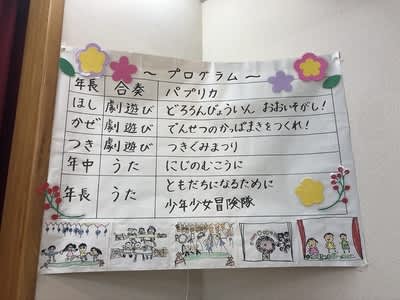 ～ プログラム ～
年長 合奏 パプリカ
ほし 劇遊び どろろんびょういん おおいそがし!
かぜ 劇遊び でんせつのかっぱまきをつくれ!
つき 劇遊び つきぐみまつり
年中 うた にじのむこうに
年長 うた ともだちになるために
少年少女冒険隊